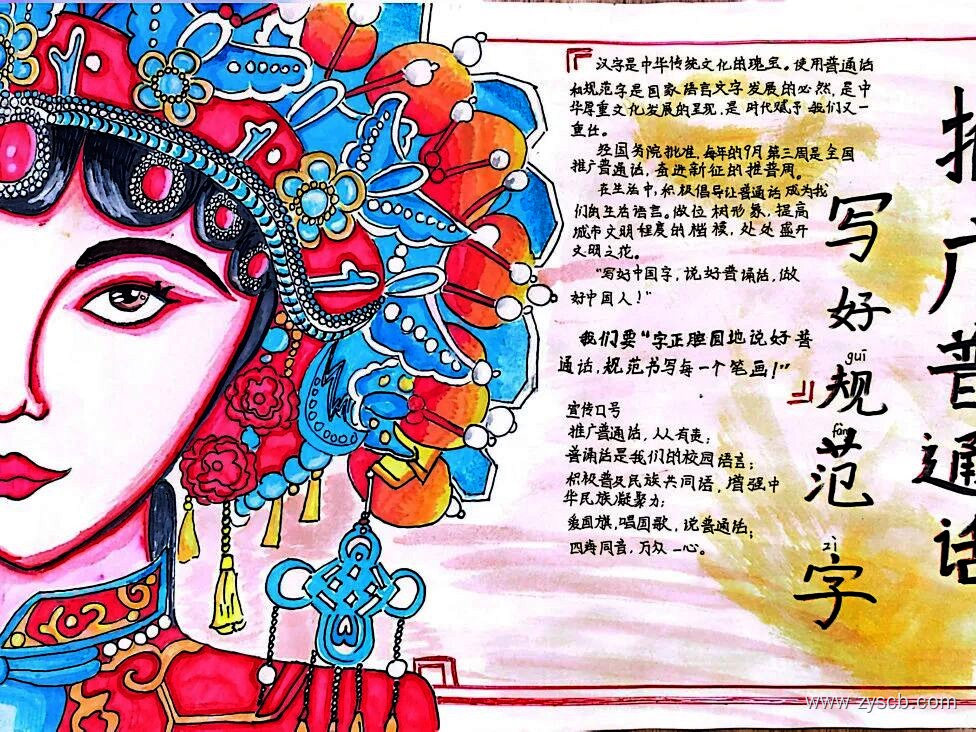 推广普通话
写好规范字
guī
fàn
zì
汉字是中华传统文化的瑰宝。使用普通话
和规范字是国家语言文字发展的必然,是中
华厚重文化发展的呈现,是时代赋予我们又一
重任。
经国务院批准,每年的9月第三周是全国
推广普通话,奋进新征的推普周。
在生活中,积极倡导让普通话成为我
们的生活语言。做位树形象,提高
城市文明程度的楷模,处处盛开
文明之花。
"写好中国字,说好普诵话,做
好中国人!"
我们要"字正腔圆地说好普
通话,规范书写每一个笔画!"
宣传口号
推广普通话,人人有责;
普诵话是我们的校园语言;
积极普及民族共同语,增强中
华民族凝聚力;
爱国旗,唱国歌,说普通话;
四海同音,万众一心。
www.zyscb.com